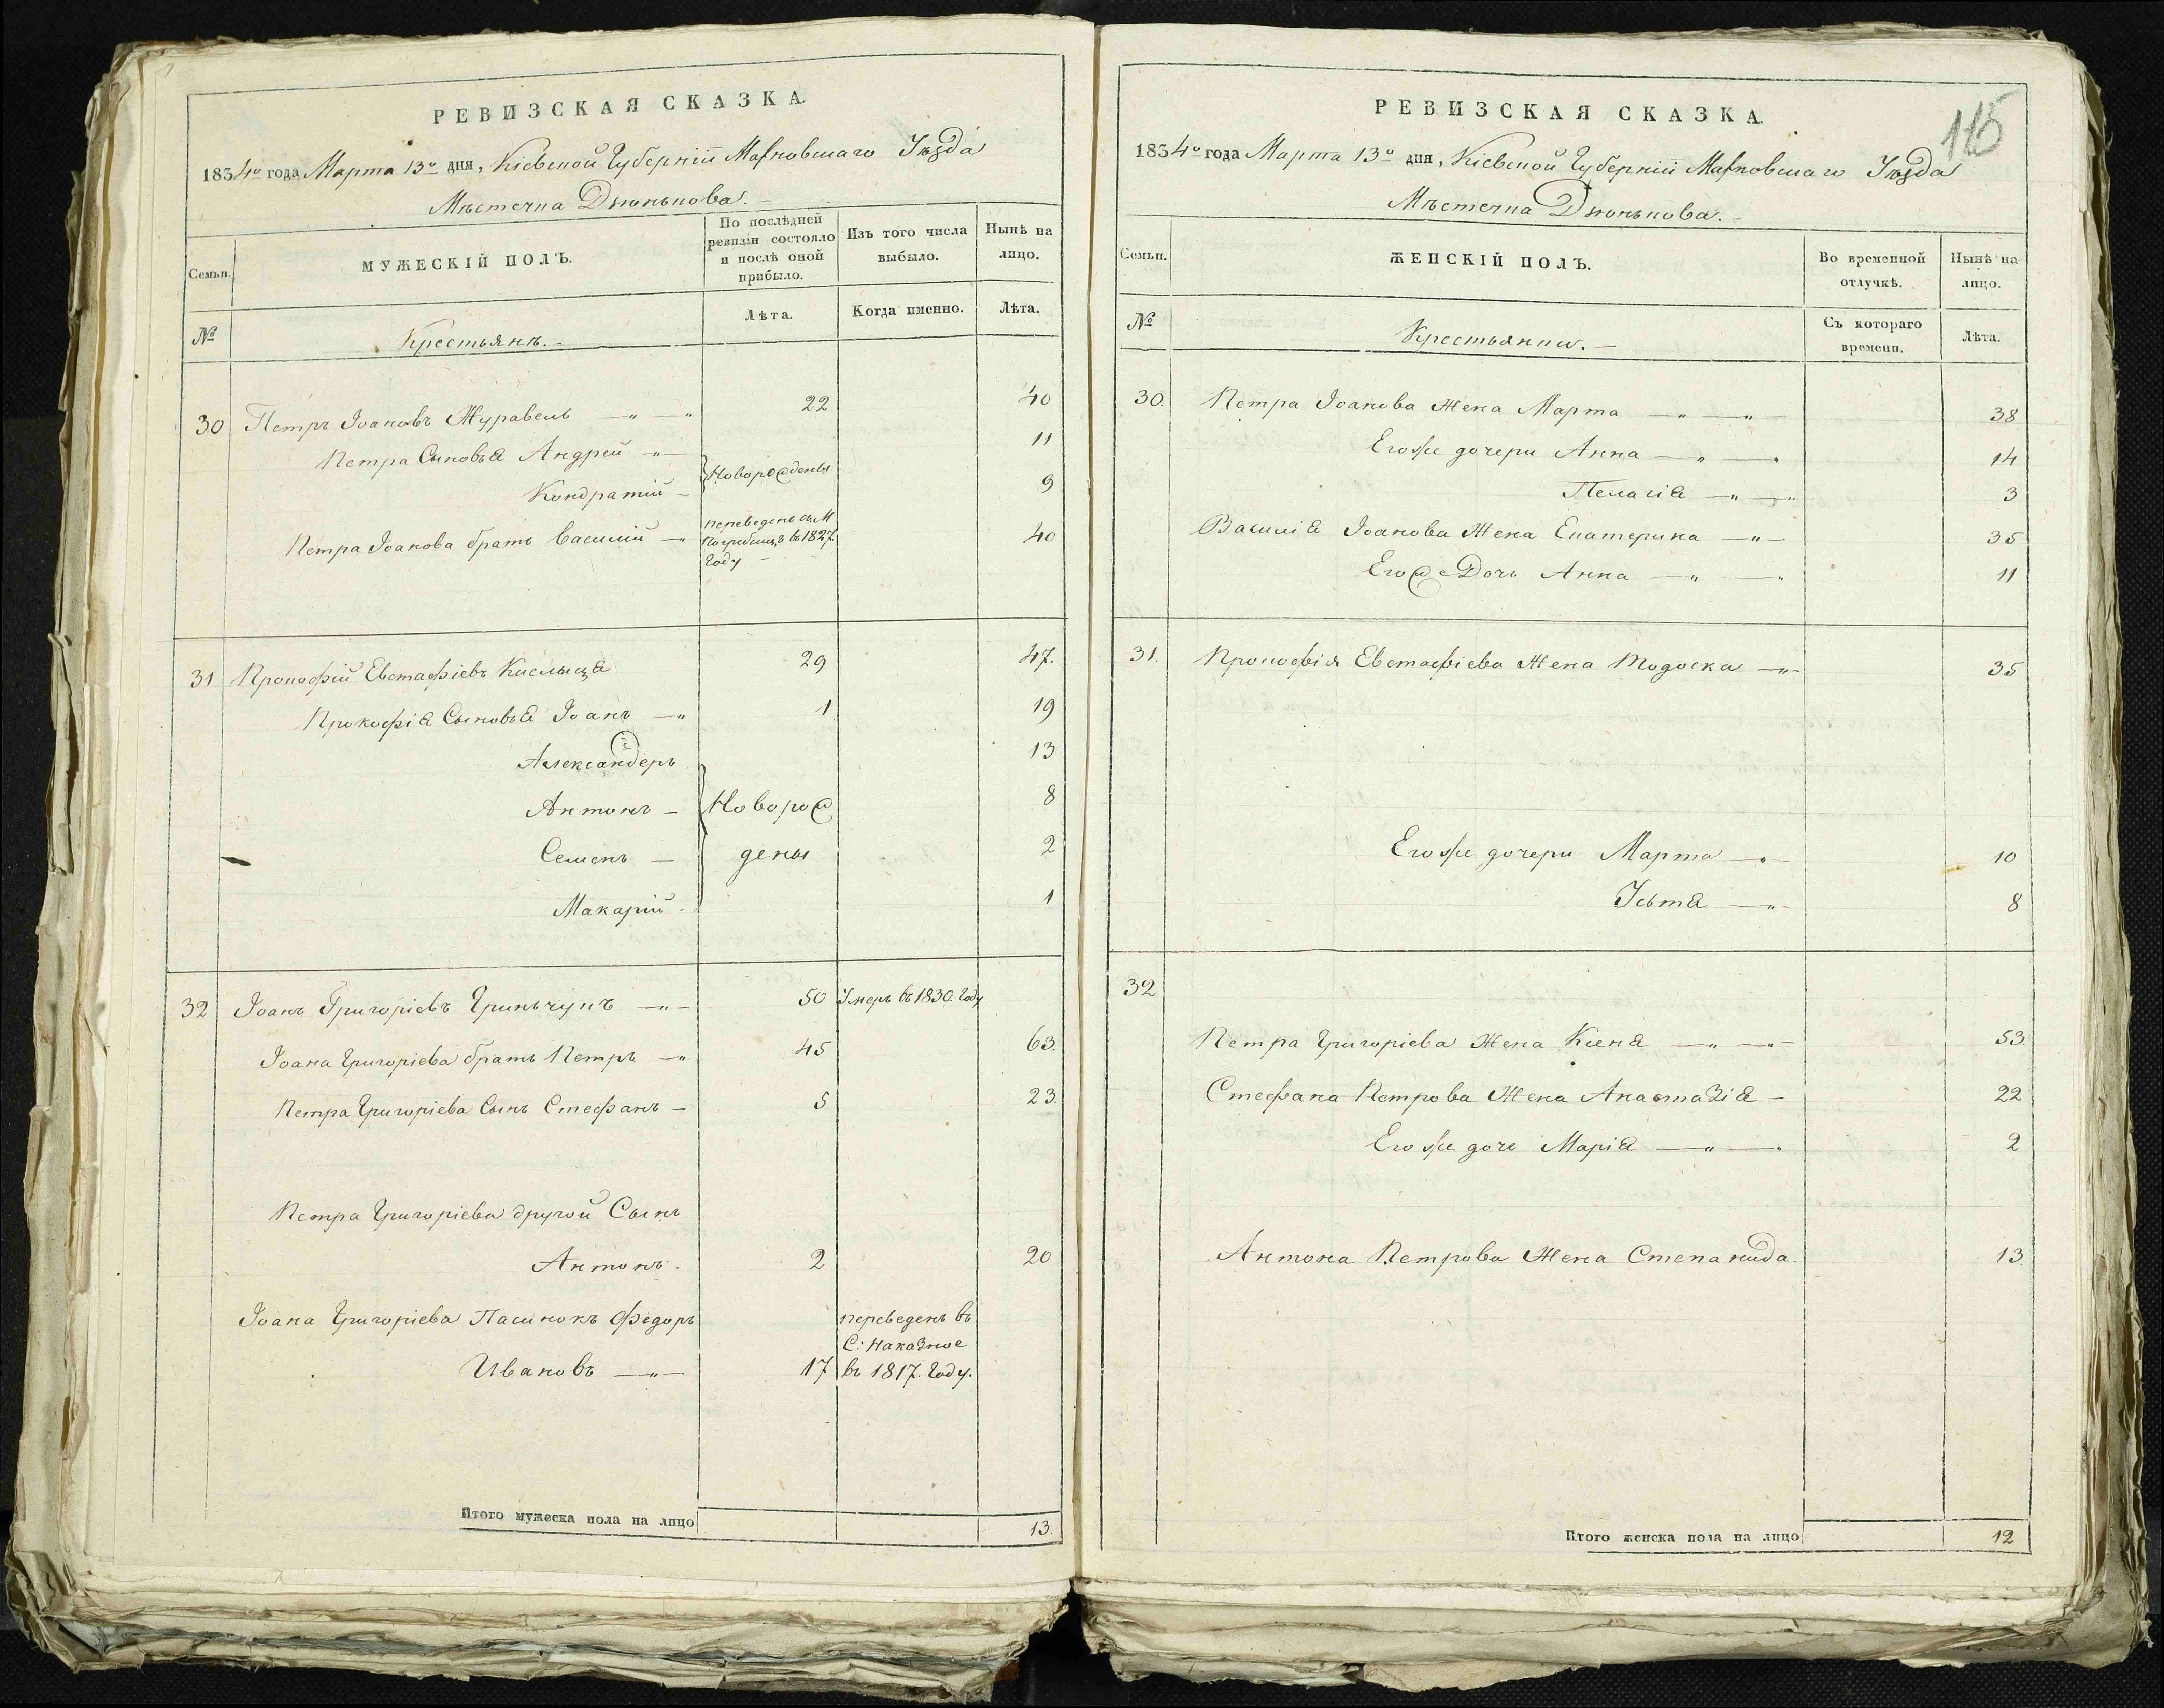 РЕВИЗСКАЯ СКАЗКА.
1834го года Марта 13го дня, Кіевской Губерніи Махновскаго Уѣзда
Мѣстечка Дзюнькова.
Семьи.
МУЖЕСКІЙ ПОЛЪ.
По послѣдней ревизіи состояло и послѣ оной прибыло.
Изъ того числа выбыло.
Нынѣ на лицо.
№
Крестьянъ.
Лѣта.
Когда именно.
Лѣта.
30 Петръ Іоановъ Журавель 22 40
Петра Сыновья Андрей 11
Новорождены
Кондратій 9
Петра Іоанова братъ Василій переведенъ съ М Погребищъ въ 1827. Году 40
31 Прокофій Евстафіевъ Кислица 29 47.
Прокофія Сыновья Іоанъ 1 19
Александеръ 13
Антонъ Новорож 8
Семенъ дены 2
Макарій 1
32 Іоанъ Григоріевъ Гриньчукъ 50 Умеръ въ 1830. Году
Іоана Григоріева братъ Петръ 45 63.
Петра Григоріева Сынъ Стефанъ 5 23.
Петра Григоріева другой Сынъ
Антонъ 2 20
Іоана Григоріева Пасинокъ Федоръ переведенъ въ
С: Наказное
Ивановъ 17 въ 1817. Году.
Итого мужеска пола на лицо 13.
115
РЕВИЗСКАЯ СКАЗКА.
1834го года Марта 13го дня, Кіевской Губерніи Махновскаго Уѣзда
Мѣстечка Дзюнькова.
Семьи.
ЖЕНСКІЙ ПОЛЪ.
Во временной отлучкѣ.
Нынѣ на лицо.
№
Крестьянки.
Съ котораго времени.
Лѣта.
30. Петра Іоанова Жена Марта 38
Егоже дочери Анна 14
Пелагія 3
Василія Іоанова Жена Екатерина 35
Егоже Дочь Анна 11
31. Прокофія Евстафіева Жена Тодоска 35
Егоже дочери Марта 10
Үстя 8
32
Петра Григоріева Жена Ксеня 53.
Стефана Петрова Жена Анастазія 22
Егоже дочь Марія 2
Антона Петрова Жена Степанида 13.
Итого женска пола на лицо 12